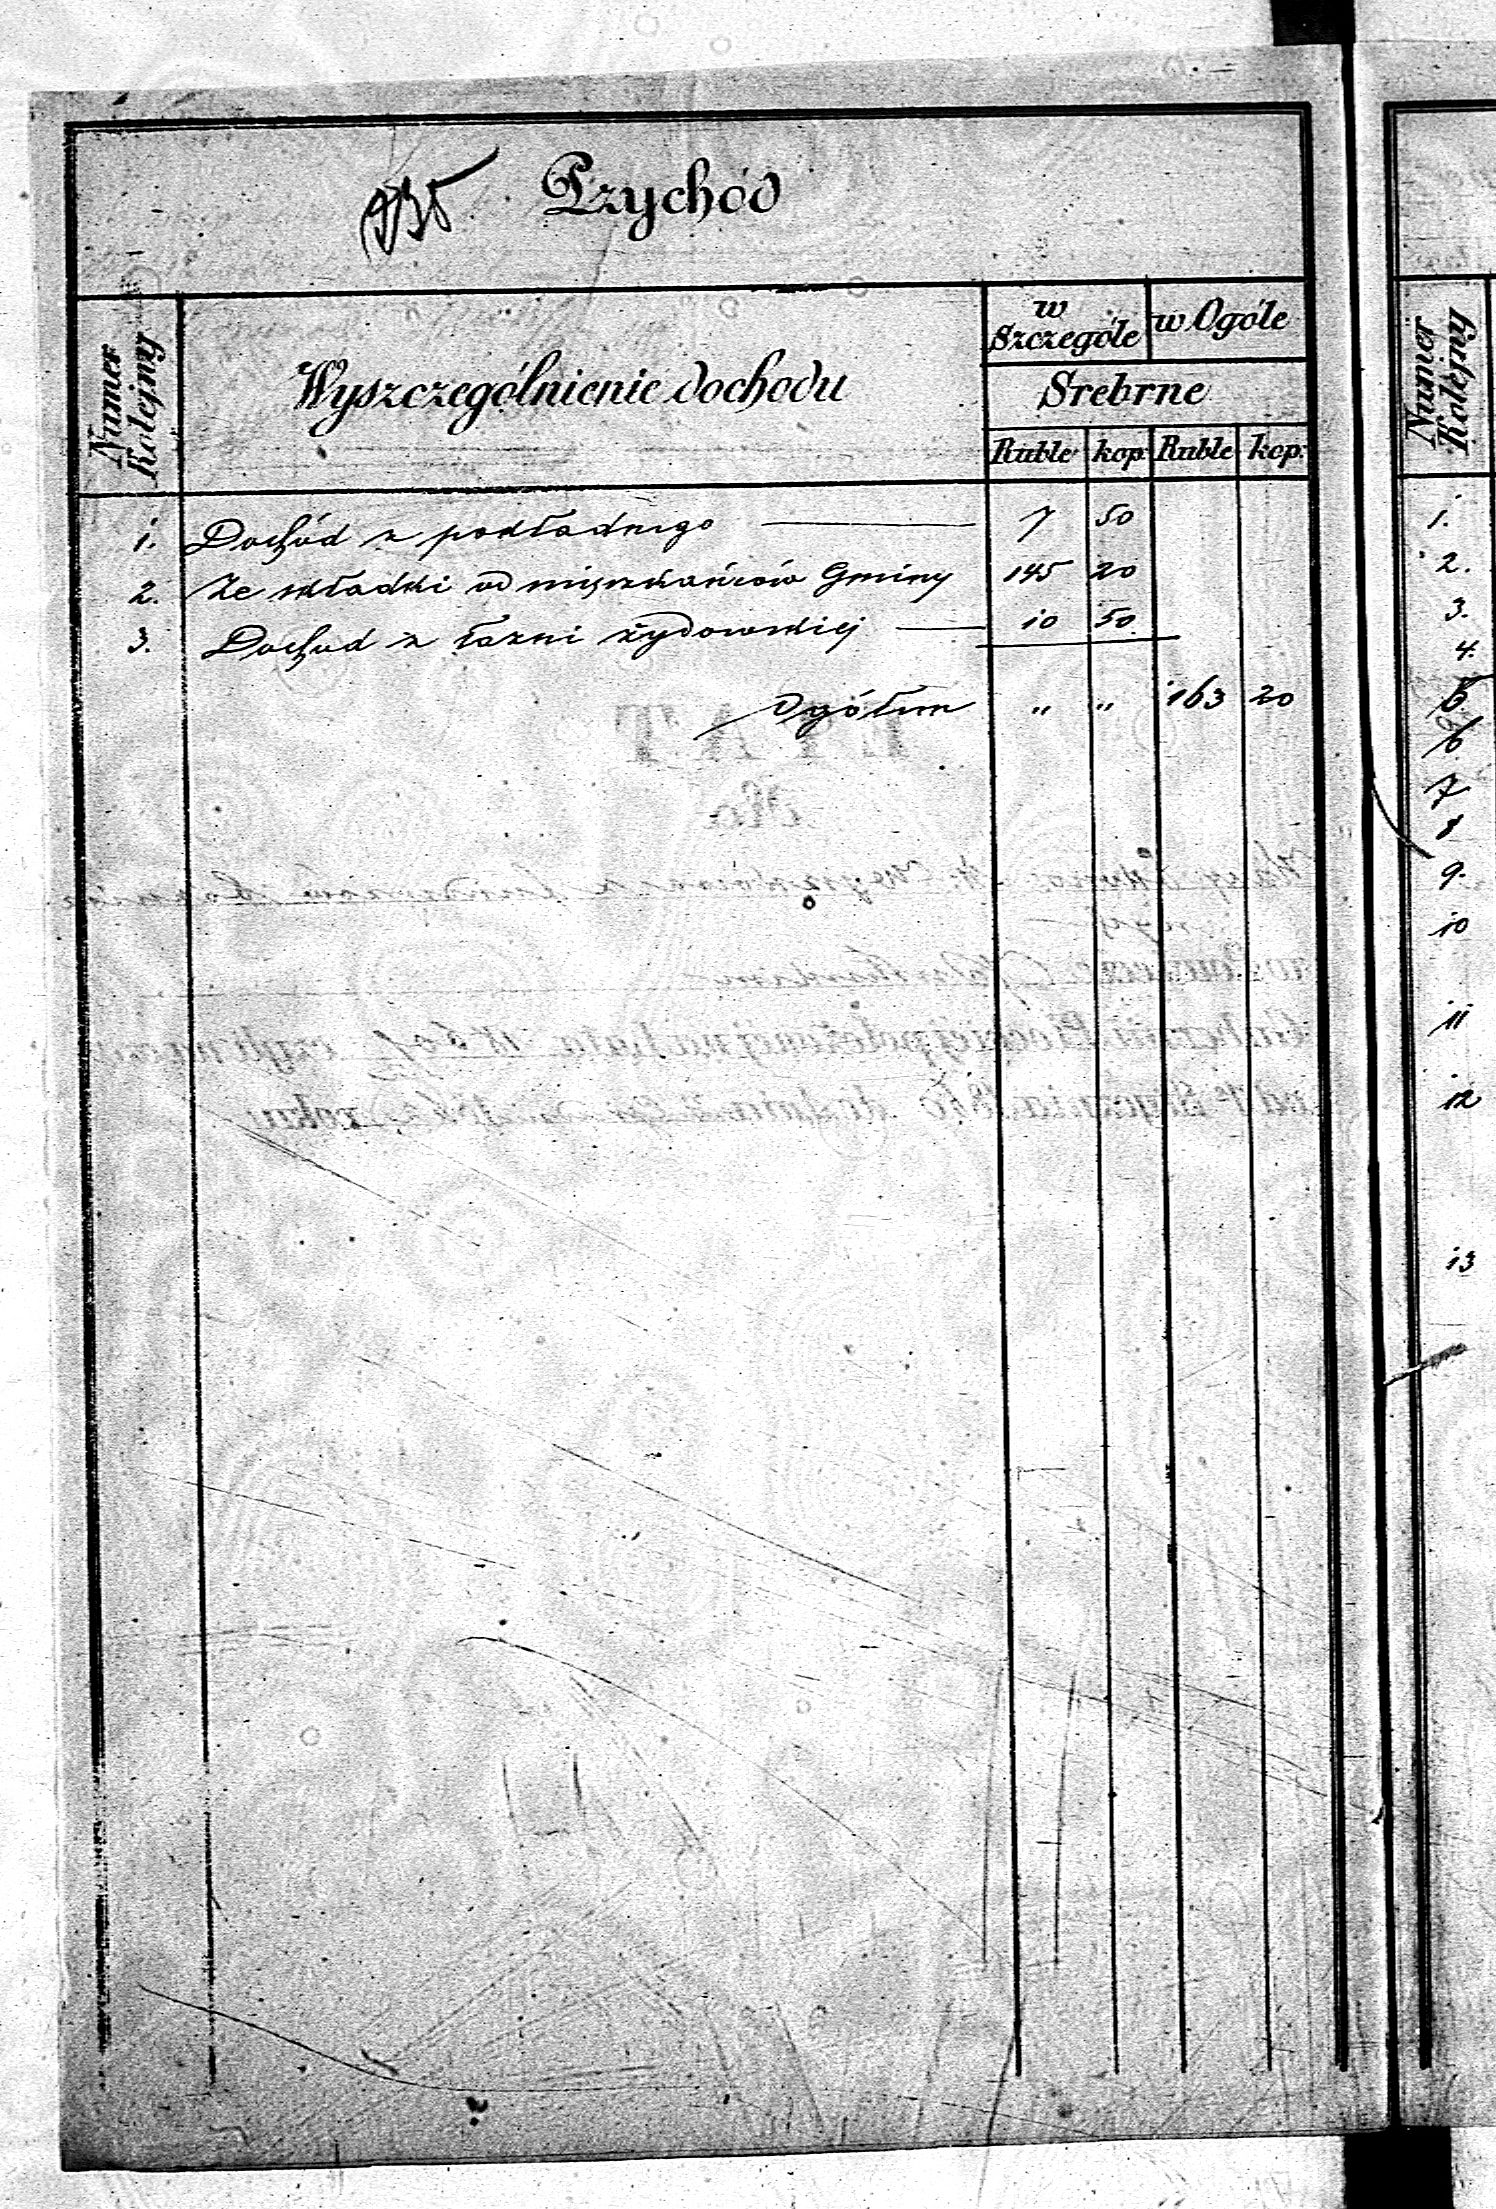 935 Przychód
Numer Kolejny
Wyszczególnienie dochodu
w Szczególe
w Ogóle
Srebrne
Ruble kop: Ruble kop:
1. Dochód z pokładnego 7 50
2. Ze składki od mieszkańców Gminy 145 20
3. Dochod z łazni żydowskiej 10 50
Ogółem " " 163 20
Numer Kolejny
1.
2.
3.
4.
5
6
7
8
9.
10
11
12
13